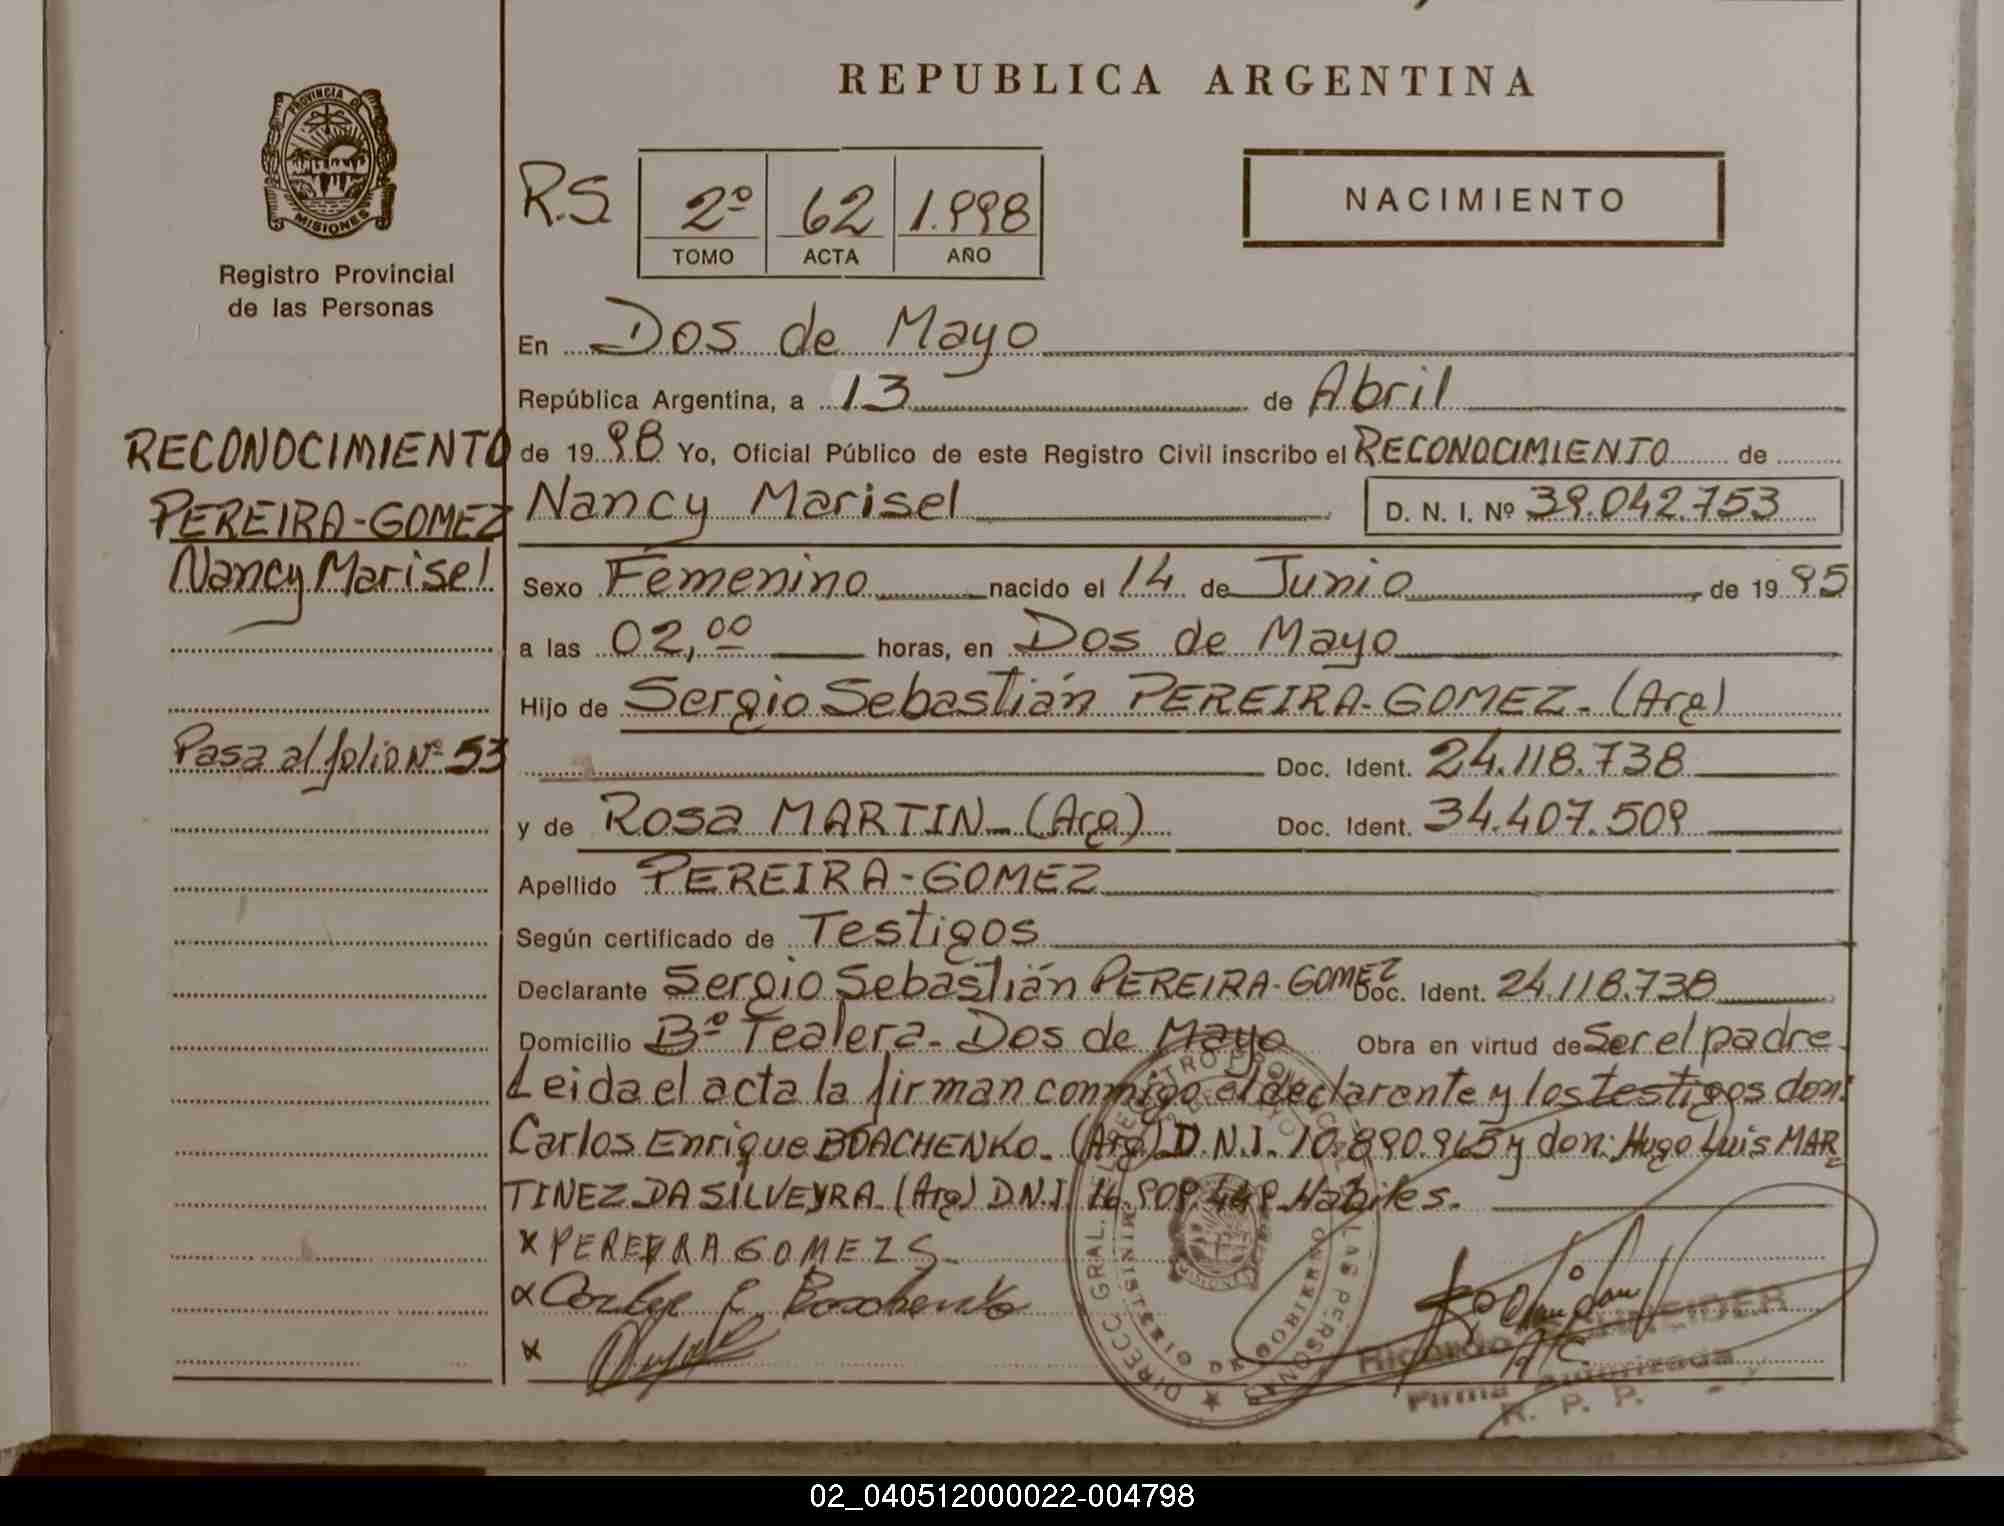 REPUBLICA ARGENTINA
PROVINCIA DE
MISIONES
Registro Provincial
de las Personas
R.S
2º 62 1.998
TOMO ACTA AÑO
NACIMIENTO
En Dos de Mayo
República Argentina, a 13 de Abril
de 1998 Yo, Oficial Público de este Registro Civil inscribo el RECONOCIMIENTO de
Nancy Marisel D. N. I. Nº 39.042.753
Sexo Femenino nacido el 14 de Junio de 1995
a las 02,00 horas, en Dos de Mayo
Hijo de Sergio Sebastián PEREIRA-GOMEZ- (Arg)
Doc. Ident. 24.118.738
y de Rosa MARTIN- (Arg) Doc. Ident. 34.407.509
Apellido PEREIRA-GOMEZ
Según certificado de Testigos
Declarante Sergio Sebastián PEREIRA-GOMEZ Doc. Ident. 24.118.738
Domicilio Bº Tealera- Dos de Mayo Obra en virtud de Ser el padre
Leida el acta la firman conmigo el declarante y los testigos don:
Carlos Enrique BOACHENKO- (Arg) D.N.I. 10.890.965 y don: Hugo Luis MAR
TINEZ DA SILVEYRA- (Arg) D.N.I. 16.909.449 Habiles.
x PEREIRA GOMEZ S
x
x
RECONOCIMIENTO
PEREIRA-GOMEZ
Nancy Marisel
Pasa al folio Nº 53
DIRECC. GRAL. REGISTRO PROVINCIAL DE LAS PERSONAS
MINISTERIO DE GOBIERNO
MISIONES
Ricardo SCHNEIDER
Firma Autorizada
R. P. P.
02_040512000022-004798